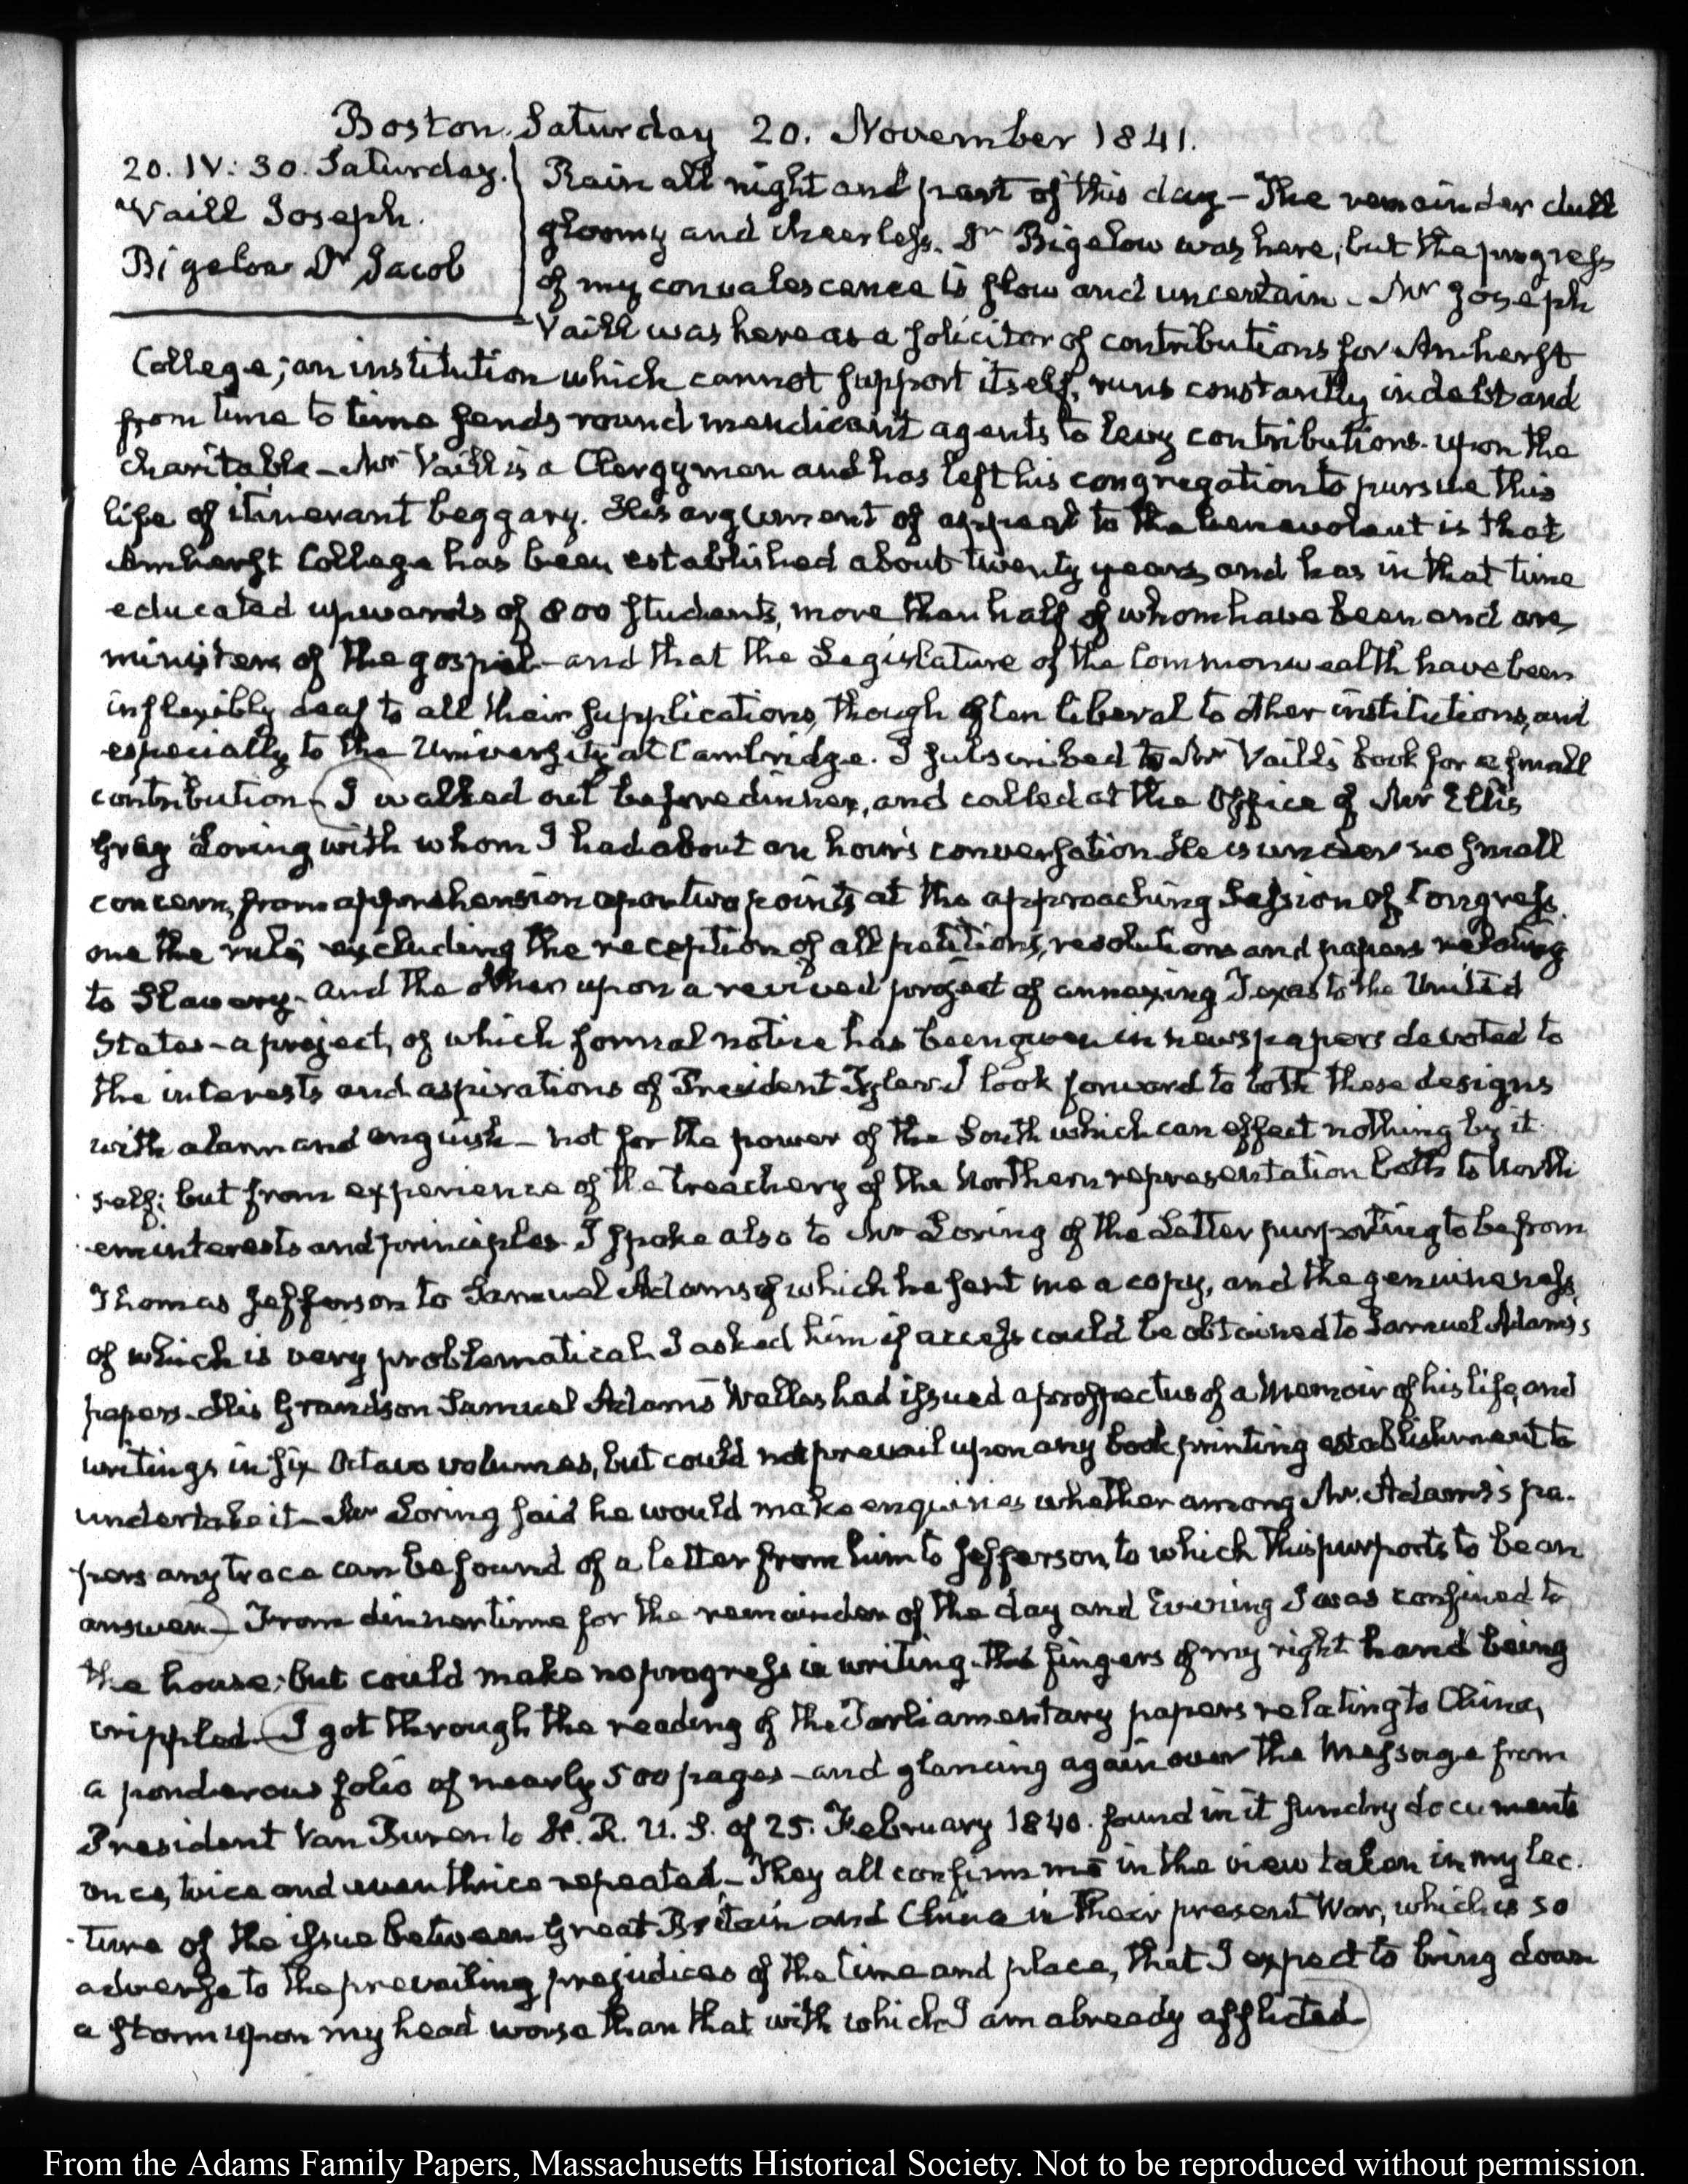 Boston. Saturday 20. November 1841.
20. IV: 30. Saturday.
Vaill Joseph.
Bigelow Dr Jacob
Rain all night and part of this day – The remainder dull
gloomy and cheerless. Dr Bigelow was here; but the progress
of my convalescence is slow and uncertain – Mr Joseph
Vaill was here as a solicitor of contributions for Amherst
College; an institution which cannot support itself, runs constantly in debt and
from time to time sends round mendicant agents to levy contributions upon the
charitable – Mr Vaill is a Clergyman and has left his congregation to pursue this
life of itinerant beggary. His argument of appeal to the benevolent is that
Amherst College has been established about twenty years, and has in that time
educated upwards of 800 students, more than half of whom have been and are,
ministers of the gospel – and that the Legislature of the Commonwealth have been
inflexibly deaf to all their supplications, though often liberal to other institutions, and
especially to the University at Cambridge. I subscribed to Mr Vaill's book for a small
contribution – I walked out before dinner, and called at the Office of Mr Ellis
Gray Loring with whom I had about an hour's conversation. He is under no small
concern, from apprehension upon two points at the approaching Session of Congress.
one the rule, excluding the reception of all petitions, resolutions and papers relating
to Slavery – and the other upon a revived project of annexing Texas to the United
States – a project, of which formal notice has been given in newspapers devoted to
the interests and aspirations of President Tyler. I look forward to both these designs
with alarm and anguish – not for the power of the South which can effect nothing by it
self; but from experience of the treachery of the Northern representation both to North
ern interests and principles. I spoke also to Mr Loring of the Letter purporting to be from
Thomas Jefferson to Samuel Adams of which he sent me a copy, and the genuineness,
of which is very problematical. I asked him if access could be obtained to Samuel Adams's
papers. His Grandson Samuel Adams Wells had issued a prospectus of a Memoir of his life, and
writings in six Octavo volumes, but could not prevail upon any book printing establishment to
undertake it – Mr Loring said he would make enquiries whether among Mr. Adams's pa.
pers any trace can be found of a letter from him to Jefferson, to which this purports to be an
answer – From dinner time for the remainder of the day and Evening I was confined to
the house; but could make no progress in writing. the fingers of my right hand being
crippled – I got through the reading of the Parliamentary papers relating to China,
a ponderous folio of nearly 500 pages – and glancing again over the Message from
President Van Buren to H. R. U. S. of 25. February 1840. found in it sundry documents
once, twice and even thrice repeated – They all confirm me in the view taken in my lec.
ture of the issue between Great Britain and China in their present War, which is so
adverse to the prevailing prejudices of the time and place, that I expect to bring down
a storm upon my head worse than that with which I am already afflicted
From the Adams Family Papers, Massachusetts Historical Society. Not to be reproduced without permission.